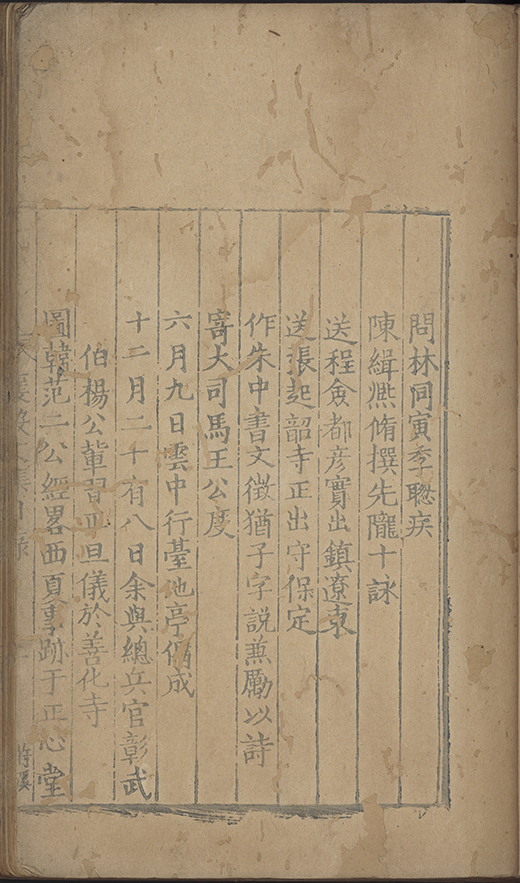 問林同寅季聦疾
陳緝熈脩撰先隴十詠
送程僉都彦實出鎮遼東
送張起韶寺正出守保定
作朱中書文徵猶子字説蕪勵以詩
寄大司馬王公度
六月九日雲中行臺池亭偶成
十二月二十有八日余與總兵官彰武
伯楊公輩習正旦儀於善化寺
圖韓范二公經畧西夏事跡于正心堂